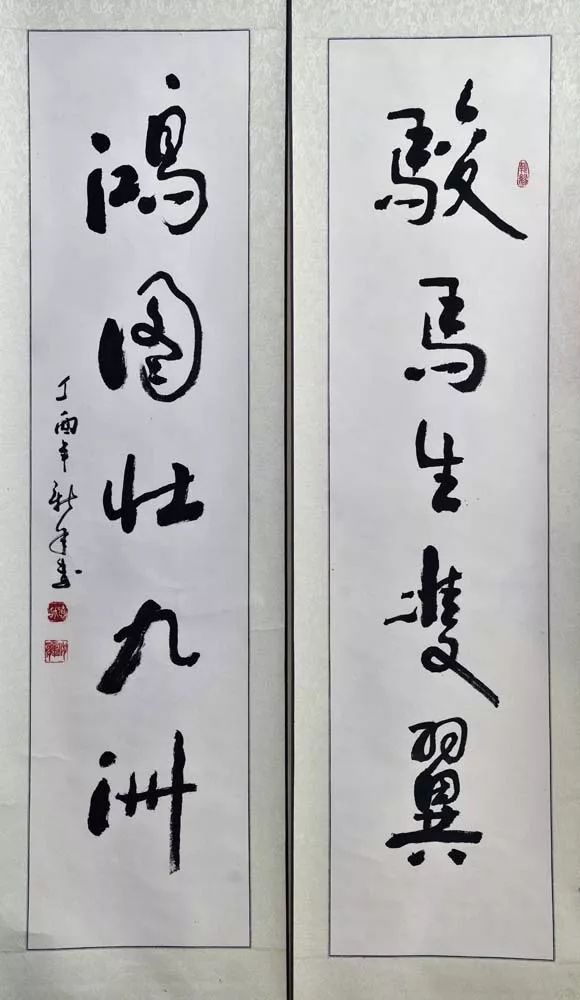 駿馬生雙翼
鴻圖壯九洲
丁酉年新年書